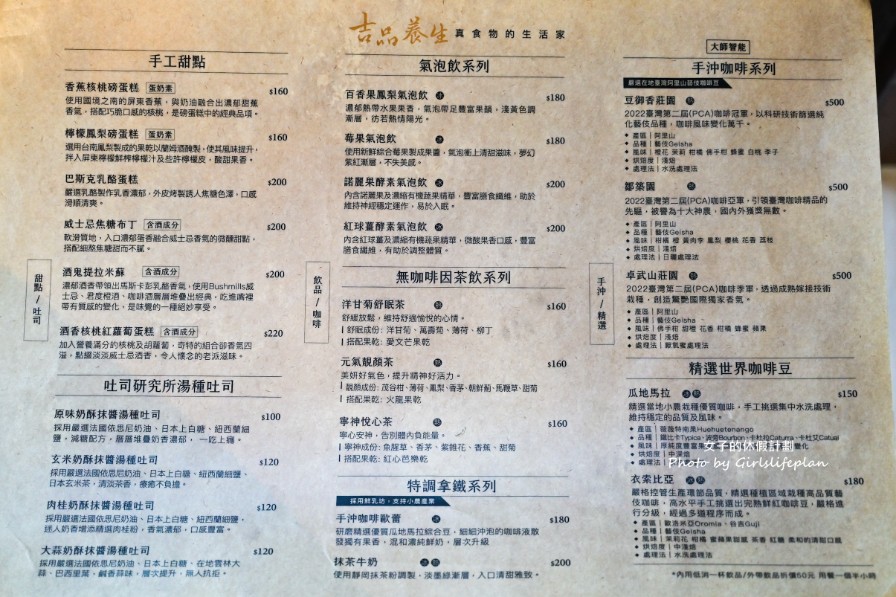 吉品養生 真食物的生活家
甜點/吐司
手工甜點
香蕉核桃磅蛋糕 蛋奶素 $160
使用國境之南的屏東香蕉，與奶油融合出濃郁甜蕉
香氣，搭配巧脆口感的核桃，是磅蛋糕中的經典品項。
檸檬鳳梨磅蛋糕 蛋奶素 $160
選用台南鳳梨製成的果乾以蘭姆酒醃製，使其風味提升，
拌入屏東檸檬鮮榨檸檬汁及些許檸檬皮，酸甜果香。
巴斯克乳酪蛋糕 $200
嚴選乳酪製作乳香濃郁，外皮烤製誘人焦糖色澤，口感
滑順清爽。
威士忌焦糖布丁 含酒成分 $200
軟滑質地，入口濃郁蛋香融合威士忌香氣的微醺甜點，
搭配細熬焦糖甜而不膩。
酒鬼提拉米蘇 含酒成分 $200
濃郁酒香帶領出馬斯卡彭乳酪香氣，使用Bushmills威
士忌、君度橙酒、咖啡酒層層堆疊出經典，吃進嘴裡
帶有質感的變化，是味覺的一種絕妙享受。
酒香核桃紅蘿蔔蛋糕 含酒成分 $220
加入營養滿分的核桃及胡蘿蔔，奇特的組合卻香氣四
溢，點綴淡淡威士忌酒香，令人懷念的老派滋味。
吐司研究所湯種吐司
原味奶酥抹醬湯種吐司 $100
採用嚴選法國依思尼奶油、日本上白糖、紐西蘭細鹽
，減糖配方，層層堆疊奶香濃郁，一吃上癮。
玄米奶酥抹醬湯種吐司 $120
採用嚴選法國依思尼奶油、日本上白糖、紐西蘭細鹽、
日本玄米茶，清淡茶香，療癒不負擔。
肉桂奶酥抹醬湯種吐司 $120
採用嚴選法國依思尼奶油、日本上白糖、紐西蘭細鹽、
迷人奶香增添精選肉桂粉，香氣濃郁，口感豐富。
大蒜奶酥抹醬湯種吐司 $120
採用嚴選法國依思尼奶油、日本上白糖、在地雲林大
蒜、巴西里葉，鹹香蒜味，層次提升，無人抗拒。
飲品/咖啡
氣泡飲系列
百香果鳳梨氣泡飲 冰 $180
濃郁熱帶水果果香，氣泡帶足豐富果韻，淺黃色調
漸層，彷若熱情陽光。
莓果氣泡飲 冰 $180
使用新鮮綜合莓果製成果醬，氣泡衝上清甜滋味，夢幻
紫紅漸層，不失美感。
諾麗果酵素氣泡飲 冰 $200
內含諾麗果及濃縮有機蔬果精華，豐富膳食纖維，助於
維持神經穩定運作，易於入眠。
紅球薑酵素氣泡飲 冰 $200
內含紅球薑及濃縮有機蔬果精華，微酸果香口感，豐富
膳食纖維，有助於調整體質。
無咖啡因茶飲系列
洋甘菊舒眠茶 熱 $160
舒緩放鬆，維持舒適愉悅的心情。
舒眠成份：洋甘菊、萬壽菊、薄荷、柳丁
搭配果乾：愛文芒果乾
元氣靚顏茶 熱 $160
美妍好氣色，提升精神好活力。
靚顏成份：茂谷柑、薄荷、鳳梨、香茅、朝鮮薊、馬鞭草、甜菊
搭配果乾：火龍果乾
寧神悅心茶 熱 $160
寧心安神，告別體內負能量。
寧神成份：魚腥草、香茅、紫錐花、香蕉、甜菊
搭配果乾：紅心芭樂乾
特調拿鐵系列
採用鮮乳坊，支持小農產業
手沖咖啡歐蕾 冰 $180
研磨精選優質瓜地馬拉綜合豆，細細沖泡的咖啡液散
發獨有果香，混和濃純鮮奶，層次升級
抹茶牛奶 冰 熱 $200
使用靜岡抹茶粉調製，淡墨綠漸層，入口清甜雅致。
手沖/精選
大師智能
手沖咖啡系列
嚴選在地臺灣阿里山藝伎咖啡豆
豆御香莊園 熱 $500
2022臺灣第二屆(PCA)咖啡冠軍，以科研技術篩選純
化藝伎品種，咖啡風味變化萬千。
產區｜阿里山
品種｜藝伎Geisha
風味｜橙花 茉莉 柑橘 佛手柑 蜂蜜 白桃 李子
烘焙度｜淺焙
處理法｜水洗處理法
鄒築園 熱 $500
2022臺灣第二屆(PCA)咖啡亞軍，引領臺灣咖啡精品的
先驅，被譽為十大神農，國內外獲獎無數。
產區｜阿里山
品種｜藝伎Geisha
烘焙度｜淺焙
處理法｜日曬處理法
卓武山莊園 熱 $500
2022臺灣第二屆(PCA)咖啡季軍，透過成熟嫁接技術
栽種，創造驚艷國際獨家香氣。
產區｜阿里山
品種｜藝伎Geisha
風味｜佛手柑 甜橙 花香 柑橘 蜂蜜 蘋果
烘焙度｜淺焙
處理法｜厭氧蜜處理法
精選世界咖啡豆
瓜地馬拉 冰 熱 $150
精選當地小農栽種優質咖啡，手工挑選集中水洗處理，
維持穩定的品質及風味。
產區｜薇薇特南果Huehuetenango
烘焙度｜中深焙
衣索比亞 冰 熱 $180
嚴格控管生產環節品質，精選種植區域栽種高品質藝
伎咖啡，高水平手工挑選出完熟鮮紅咖啡豆，嚴格進
行分級，經過多道程序而成。
產區｜歐洛米亞Oromia、谷吉Guji
品種｜藝伎Geisha
烘焙度｜中淺焙
處理法｜水洗處理法
*內用低消一杯飲品/外帶飲品折價50元 用餐一個半小時
女子的休假計劃
Photo by Girlslifeplan